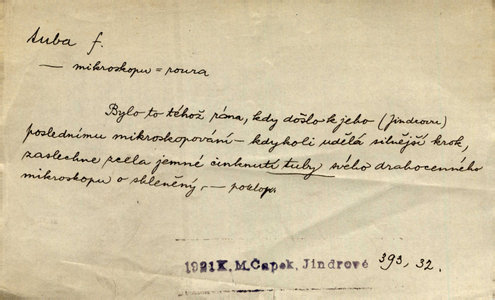 tuba f.
— mikroskopu = roura
Bylo to téhož rána, kdy došlo k jeho (Jindrovu)
poslednímu mikroskopování — kdykoli udělá silnější krok,
zaslechne zcela jemné cinknutí tuby svého drahocenného
mikroskopu o skleněný, — poklop.
1921 K. M. Čapek, Jindrové 393, 32.